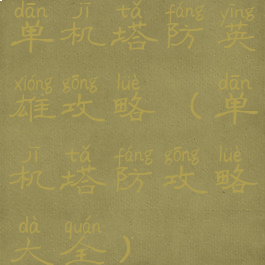 dān jī tǎ fáng yīng
单机塔防英
xióng gōng lüè dān
雄攻略（单
jī tǎ fáng gōng lüè
机塔防攻略
dà quán
大全）